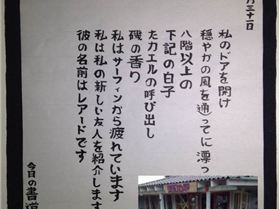 月三十一日
私のドアを開け
穏やかの風を通ってに漂っ
八階以上の
下記の白子
たカエルの呼び出し
磯の香り
私はサーフィンから疲れています
私は私の新しい友人を紹介します
彼の名前はレアードです
今日の書道